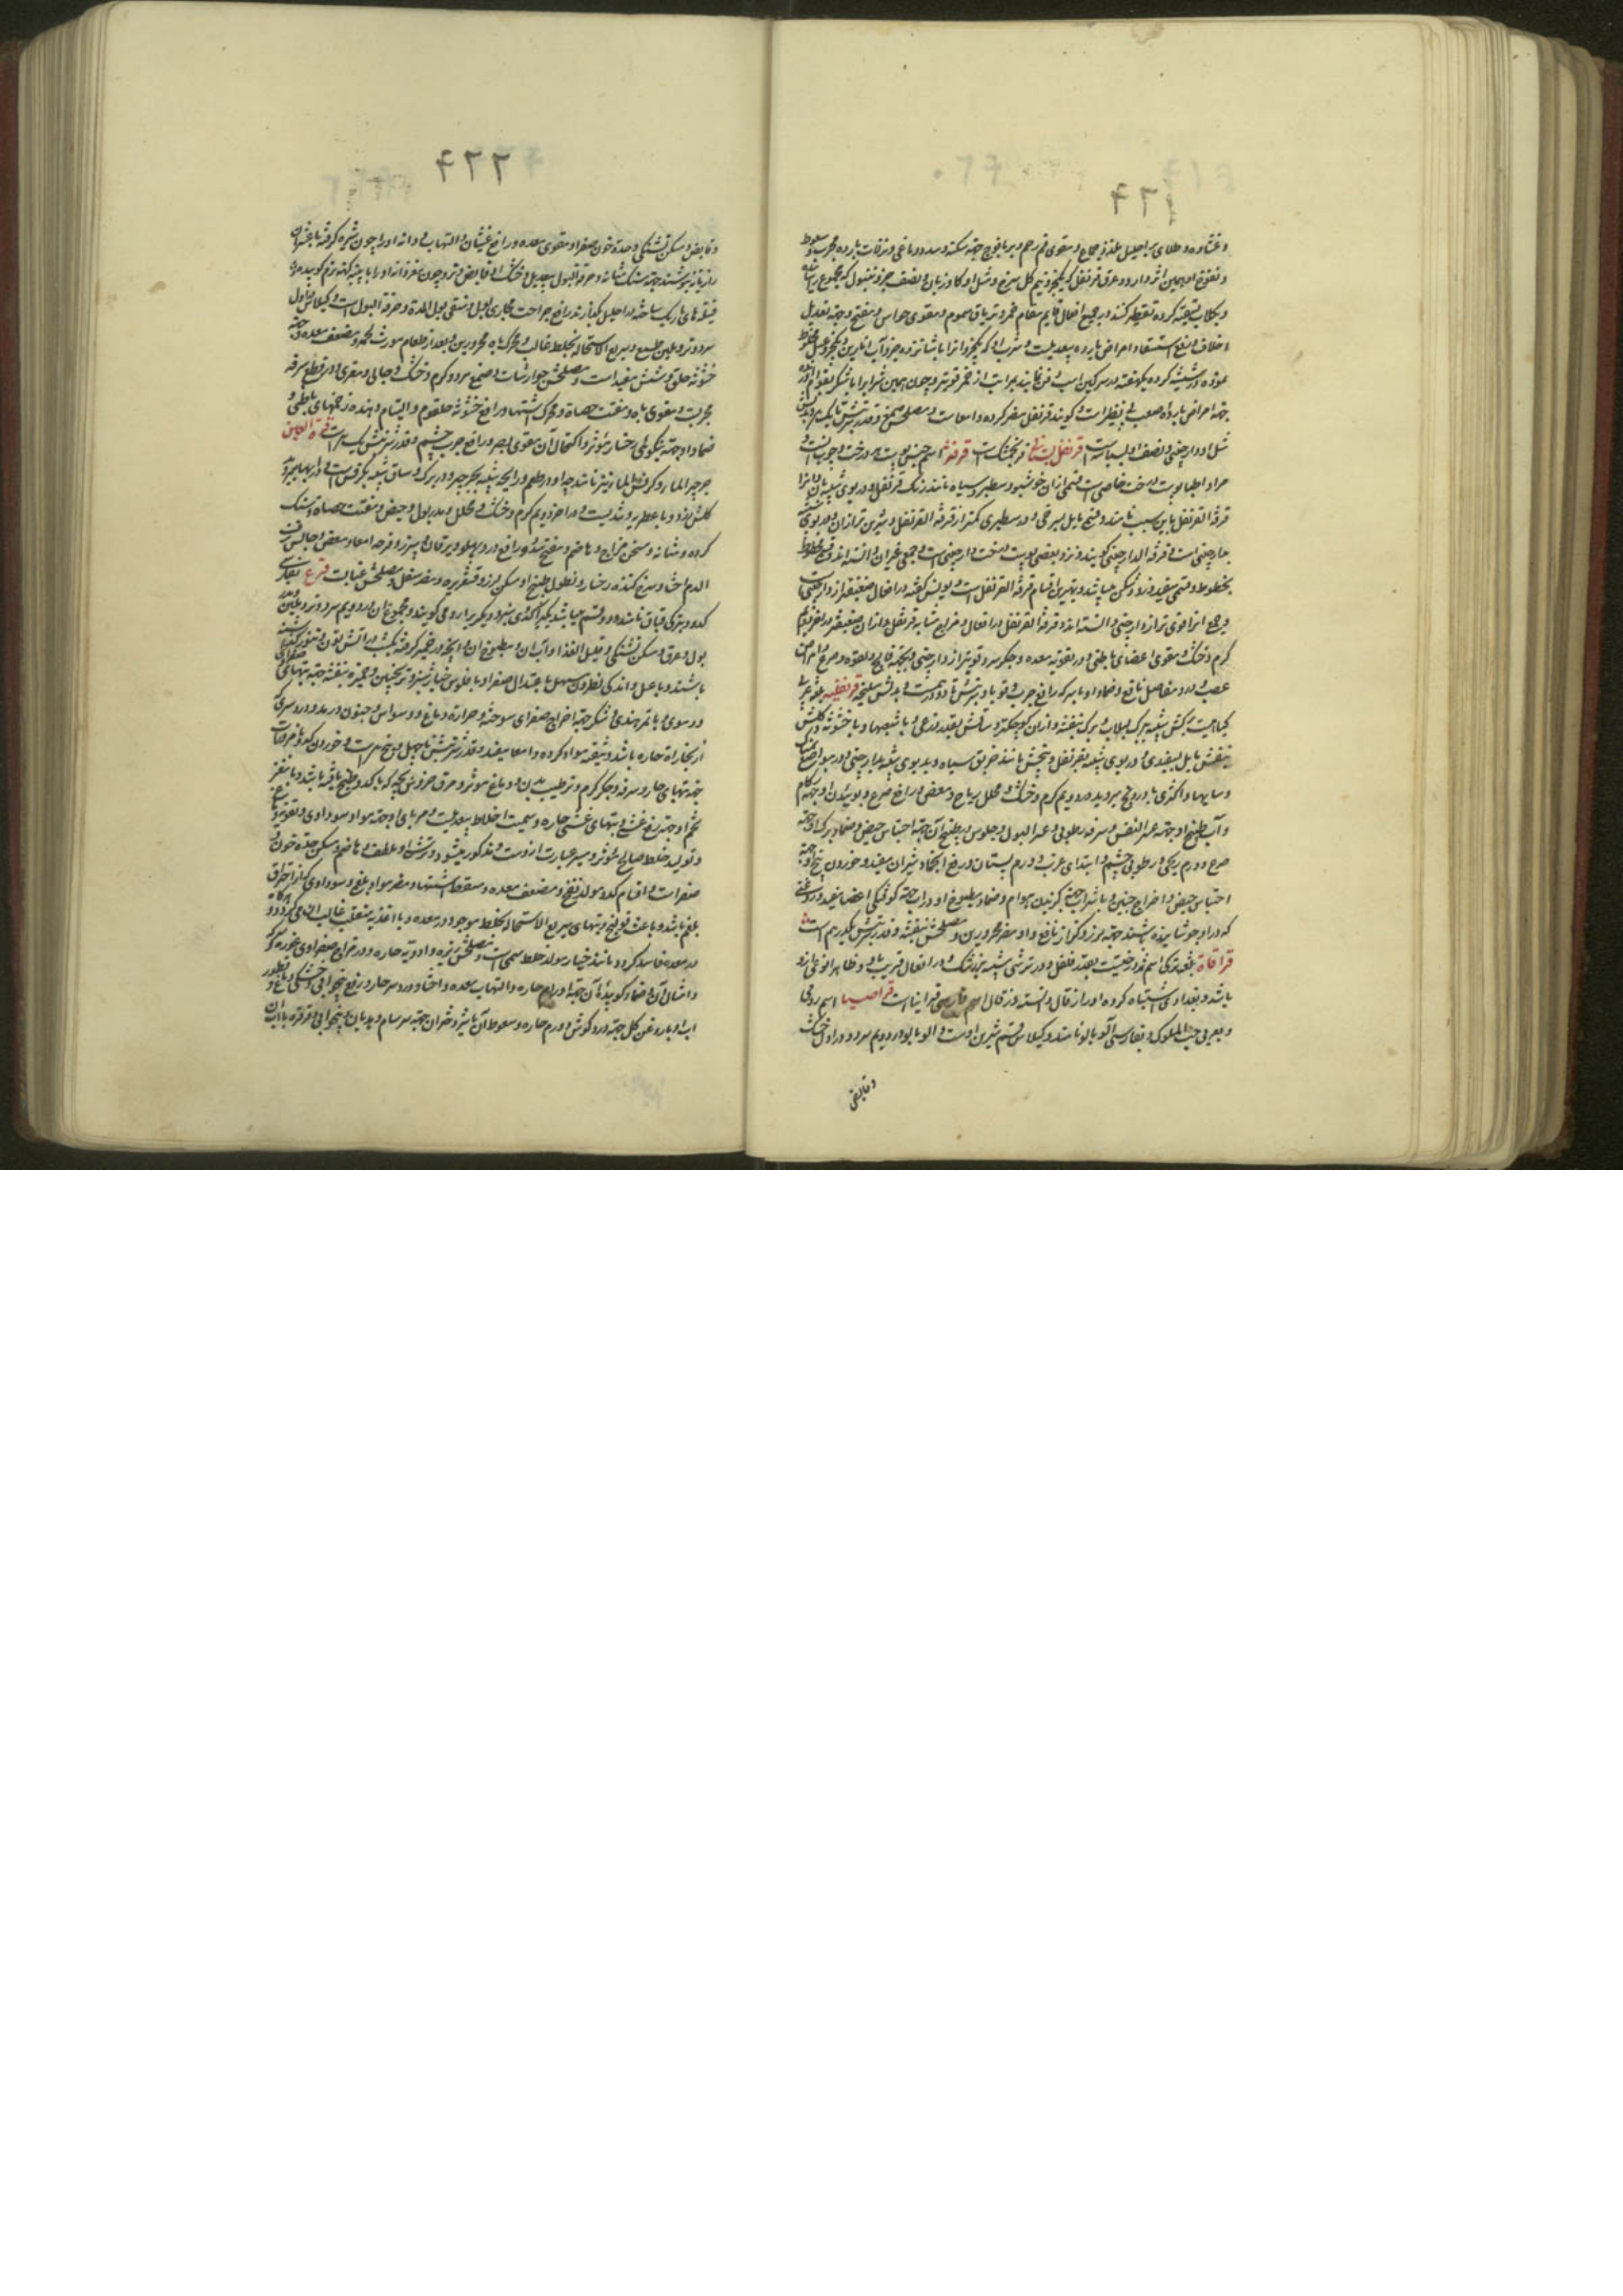 وغشاوه و طلای بر احلیل ملذذ جماع و مقوی فم رحم و بر یافوخ جهة سکته و سدد دماغی و نزلات بارده مجرب و سعوط
و نفوخ او همین اثر دارد و عرق قرنفل که یکجزو نیم کل سرخ و مثل او کاوزبان و نصف جزو
و بکلاب تقطیر کنند در جمیع افعال قایم مقام خمر و تریاق سموم و مقوی حواس و مفتح و جهة تعدیل
اخلاط و منع استسقا و امراض بارده بیعدیلست و شراب او که یکجزو انرا با شانزده جزو آب انکورین
نموده در شیشه کرده یکهفته در سرکین اسب دفن نمایند بمراتب از خمر قویتر و چون همین شراب را با شکر بقوام آورند
جهة امراض بارده صعب بی نظیر است و کویند قرنفل مضر کرده و امعاست و مصلحش صمغ و قدر شربتش تا یکدرهم و بدلش
مثل او دارچینی و نصف او بسباسه است قرنفل بستانی فرنجمشک است قرفه اسم جنس پوست درخت و چوب است و
مراد اطبا پوست درخت خاصی است و قسمی از ان خوشبو و سطبر و سیاه مانند رنک قرنفل و در بوی شبیه بان و انرا
قرفة القرنفل باین سبب نامند و قسمی مایل بسرخی و در سطبری کمتر از قرفة القرنفل و شیرین تر از ان و در بوی شبیه
بدارچینی است و قرفة الدارچینی کویند و نزد بعضی پوست درخت دارچینی است و جمعی غیر ان دانسته اند و قسمی مخطوط
بخطوط و قسمی سفید و زودشکن میباشد و بهترین اقسام قرفة القرنفل است و یونس کفته در افعال ضعیفتر از دارچینی است
و جمعی انرا قوی تر از دارچینی دانسته اند و قرفة القرنفل در افعال و مزاج مشابه قرنفل و از ان ضعیفتر در اخر دویم
کرم و خشک و مقوی اعضای باطنی و در تقویة معده و جکر سرد قویتر از دارچینی و بجهة فالج و لقوه و صرع و امراض
عصب و درد مفاصل نافع و ضماد او با سرکه رافع جرب و قوبا و شربتش تا دو درهم است و بدلش سلیخه قرنفلیه بلغة عربی
کیاهیست برکش شبیه ببرک لبلاب و برک بنفشه و از ان کوچکتر و ساقش بقدر ذرعی و با شعبها و با خشونة و کلش
بنفش مایل بسفیدی و در بوی شبیه بقرنفل و بیخش مانند خربق سیاه و بدبوی شبیه بدارچینی و در مواضع
و سایها و اکثری با دروج میروید در دویم کرم و خشک و محلل ریاح و مغص و رافع صرع و بوییدن او جهة زکام
و آب طبیخ او جهة عسر النفس و سرفه رطوبی و عسر البول و جلوس در طبیخ آن جهة احتباس حیض و ضماد برک او جهة
صرع و ورم ریحی و رطوبی چشم و ابتدای غرب و ورم پستان و رفع انجماد شیر ان مفید و خوردن بیخ او جهة
احتباس حیض و اخراج جنین و با شراب جهة کزیدن هوام و ضماد مطبوخ او در آب جهة کوفتکی اعضا مفید و روغنی
که در او جوشانیده باشند جهة برز و کزاز نافع و او مضر محرورین و مصلحش بنفشه و قدر شربتش یکدرهم است
قراقاة بلغة ترکی اسم ثمر درختیست بقدر فلفل و در ترشی شبیه بزرشک و در افعال قریب باو و ظاهرا نوعی از او
باشد و بغدادی اشتباه کرده او را زقال دانسته و زقال اسم فارسی قرانیاست قراصیا اسم رومی
و بعربی حب الملوک و بفارسی آلو بالو نامند و کیلاس قسم شیرین اوست و الو بالو در دویم سرد و در اول خشک
و قابض
و قابض و مسکن تشنکی و حدة خون و صفرا و مقوی معده و رافع غثیان و التهاب و دانه او را چون شیره کرفته با عسل و
رازیانه بنوشند جهة سنک مثانه و حرقة البول بیعدیل و خشک او قابض تر و چون مغز دانه او را با پنبه کهنه نرم کوبیده
فتیله های باریک ساخته در احلیل کذارند رافع جراحت مجاری بول و منقی بول المدة و حرقة البول است و کیلاس در اول
سرد و تر و ملین طبع و سریع الاستحاله بخلط غالب و محرک باه محرورین و بعد از طعام مورث تخمه و مضعف معده و جهة
خشونة حلق و شش مفید است و مصلحش جوارشات و صمغ سرد و کرم و خشک و جالی و مغری و در قطع سرفه
مجربست و مقوی باه و مفتت حصاة و محرک اشتها و رافع خشونة حلقوم و التیام دهنده زخمهای باطنی و
ضماد او جهة نیکویی رخسار مؤثر و اکتحال آن مقوی بصر و رافع جرب چشم و قدر شربتش یکدرهم است قرة العین
جرجیر الماء و کرفس الماء نیز نامند چه او در طعم و رایحه شبیه بجرجیر و در برک و ساق شبیه بکرفس است و در ابها میروید
کلش زرد و با عطریه و تندیست و در اخر دویم کرم و خشک و محلل و مدر بول و حیض و مفتت حصاة و سنک
کرده و مثانه و مسخن مزاج و هاضم و مفتح سدد و رافع درد پهلو و یرقان و سپرز و قرحه امعا و مغص و حابس نزف
الدم احشا و سرخ کننده رخسار و نطول طبیخ او مسکن لرز و قشعریره و مضر سفل و مصلحش عنابست قرع بفارسی
کدو و بترکی قباق نامند و دو قسم میباشد یکیرا کدوی سبز و دیکریرا رومی کویند و مجموع ان در دویم سرد و تر و ملین و مدر
بول و عرق و مسکن تشنکی و قلیل الغذا و آب ان و مطبوخ ان و انچه در خمیر کرفته یکشب در آتش تون و تنور کذاشته
باشند و با عسل و اندکی نطرون مسهل باعتدال صفرا و با فلوس خیارشنبر و ترنجبین و خمیره بنفشه جهة تبهای صفراوی
و دموی و با تمر هندی و شکر جهة اخراج صفرای سوخته و حرارة دماغ و وسواس و جنون و رمد و درد سری که
از بخارات حاره باشد و تنقیه مواد کرده و امعا مفید و قدر شربتش تا چهل و پنج درم است و خوردن کدو با مزورات
جهة تبهای حار و سرفه و جکر کرم و ترطیب بدن و دماغ موثر و مرق خروس بچه که با کدو طبخ یافته باشد و با مغز
تخم او جهة رفع غشی و تبهای غشیی حاره و سمیت اخلاط بیعدیلست و مربای او جهة مواد سوداوی و تقویة دماغ
و تولید خلط صالح مؤثر و سیر عبارت ازوست و مذکور میشود و ترشی او ملطف و هاضم و مسکن حدة خون و
صفراست و اقسام کدو مولد نفخ و مضعف معده و مسقط اشتها و مضر مواد بلغم و سوداوی که از احتراق
بلغم باشد و باعث قولنج و تبهای سریع الاستحاله بخلط موجود در معده و با اغذیه منقلب بغالب ان می کردد و هر کاه
در معده فاسد کردد مانند خیار مولد خلط سمی است و مصلحش زیره و ادویه حاره و در مزاج صفراوی غوره و سرکه
و امثال آن و ضماد کوبیده آن جهة اورام حاره و التهاب معده و احشا و درد سر حار و رفع بیخوابی و خشکی دماغ و قطور
اب او با روغن کل جهة درد کوش و ورم حاره و سعوط آن با شیر دختران جهة سرسام و هذیان و بیخوابی و غرغره باب ان